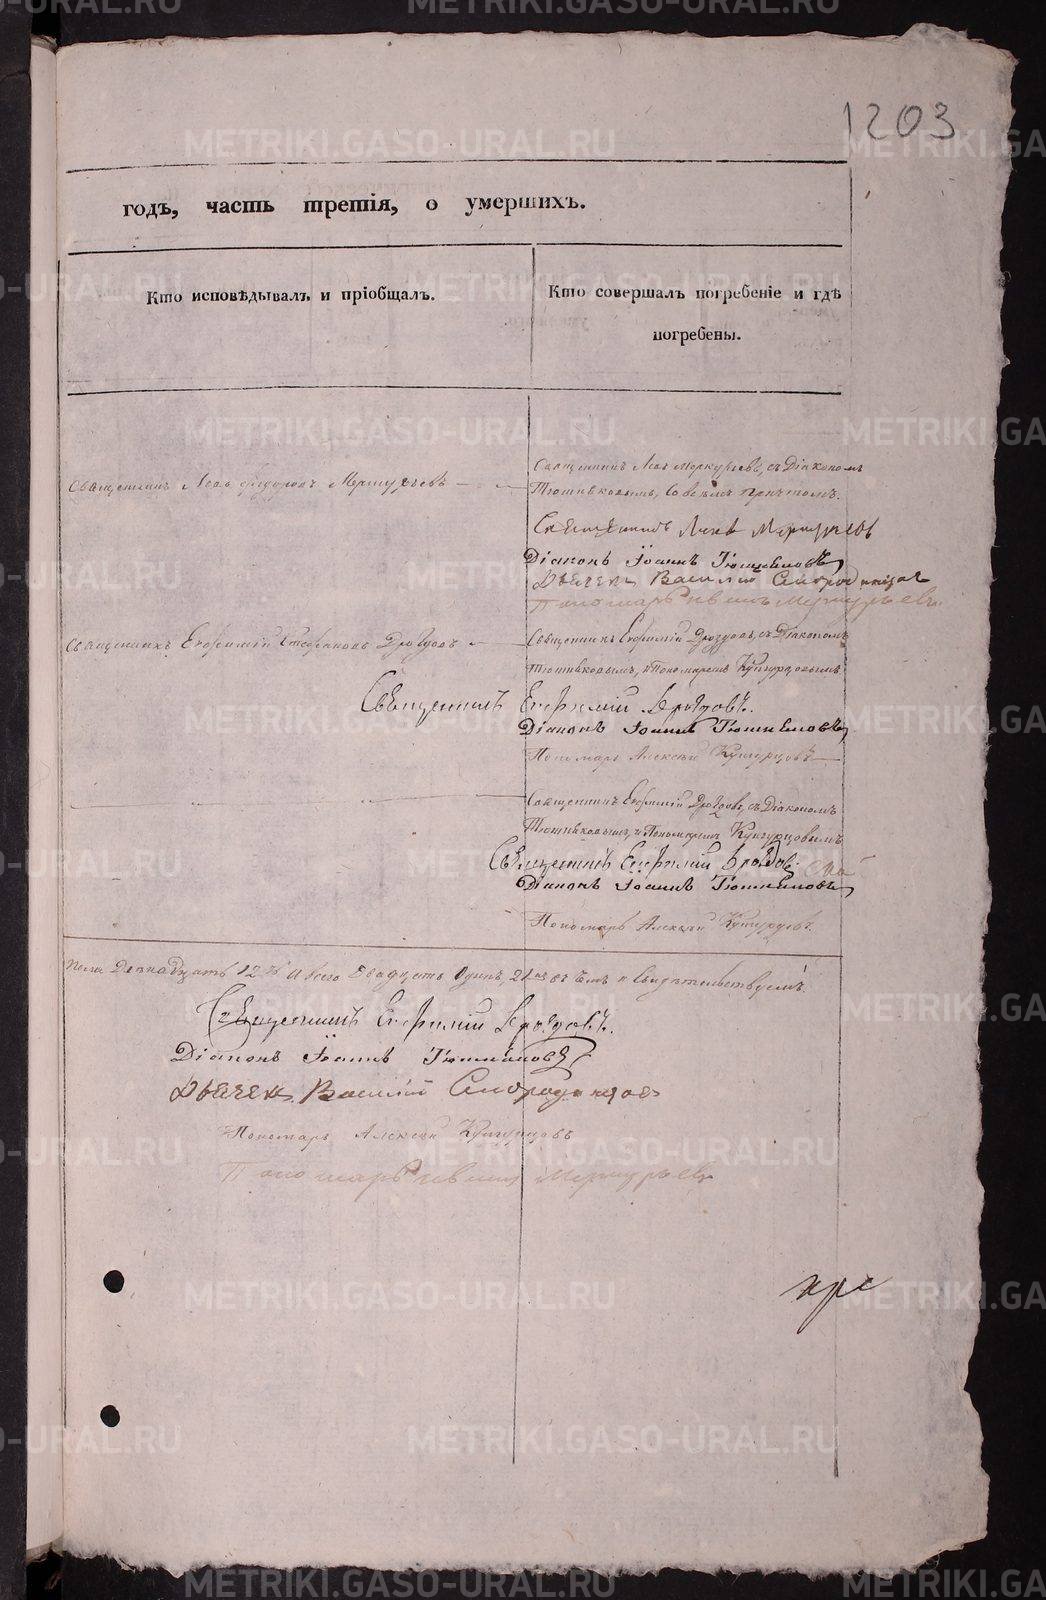 1203
годъ, часть третія, о умершихъ.
Кто исповѣдывалъ и пріобщалъ.
Кто совершалъ погребеніе и гдѣ
погребены.
Священникъ Левъ Меркурьевъ, съ Діакономъ
Священникъ Левъ Меркурьевъ
Тюшняковымъ, со всѣмъ причтомъ.
Священникъ Левъ Меркурьевъ
Діаконъ Іоаннъ Тюшняковъ
Дьячекъ Василій Смородинцовъ
Пономарь Меркурьевъ
Священникъ Евфимій Стефановъ Дроздовъ
Священникъ Евфимій Дроздовъ, съ Діакономъ
Тюшняковымъ, и Пономаремъ Кунгурцовымъ
Священникъ Евфимій Дроздовъ.
Діаконъ Іоаннъ Тюшняковъ
Пономарь Алексѣй Кунгурцовъ
Священникъ Евфимій Дроздовъ, съ Діакономъ
Тюшняковымъ, и Пономаремъ Кунгурцовымъ
Священникъ Евфимій Дроздовъ
Діаконъ Іоаннъ Тюшняковъ
Пономарь Алексѣй Кунгурцовъ.
пола Двенадцать 12 А всего Двадцать Одинъ, 21 въ чемъ и Свидѣтельствуемъ.
Священникъ Евфимій Дроздовъ.
Діаконъ Іоаннъ Тюшняковъ
Дьячекъ Василій Смородинцовъ
Пономарь Алексѣй Кунгурцовъ
Пономарь Меркурьевъ
METRIKI.GASO-URAL.RU